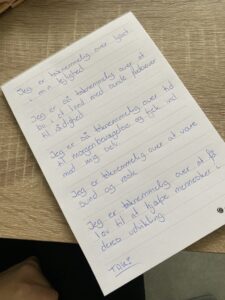 Jeg er taknemmelig over lyset
i min lejlighed.
Jeg er så taknemmelig over at
bo i et land med sunde fødevarer
til rådighed.
Jeg er så taknemmelig over tid
til morgenbevægelse og tjek ind
med mig selv.
Jeg er taknemmelig over at være
sund og rask
Jeg er taknemmelig over at få
lov til at hjælpe mennesker i
deres udvikling.
TAK!